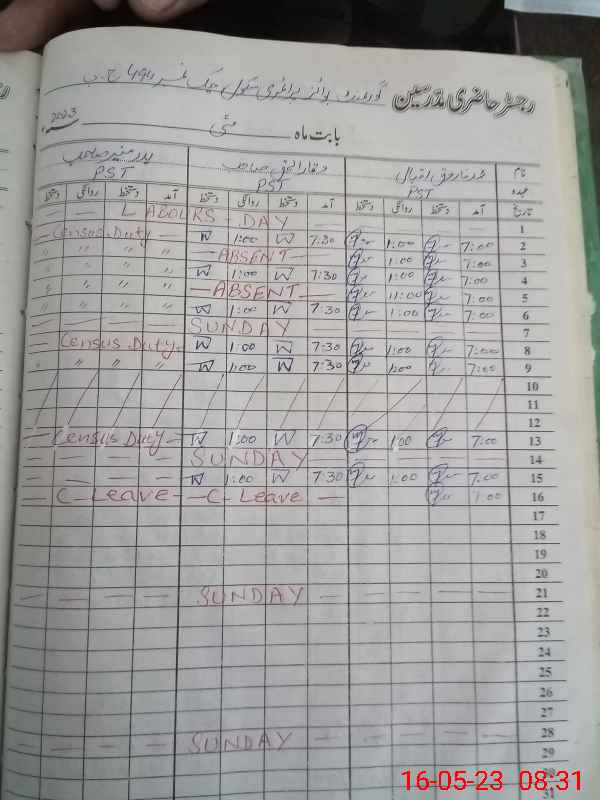 رجسٹر حاضری مدرسین گورنمنٹ بوائز پرائمری سکول چک نمبر 494 ج ب
بابت ماہ مئی 2023ء
نام
عہدہ PST PST PST
تاریخ آمد دستخط روانگی دستخط آمد دستخط روانگی دستخط آمد دستخط روانگی دستخط
— — LABOURS - DAY — — — 1
Census Duty — 1:00 7:30 1:00 7:00 2
" " " — ABSENT — 1:00 7:00 3
" " " 1:00 7:30 1:00 7:00 4
" " " — ABSENT — 11:00 7:00 5
" " " 1:00 7:30 1:00 7:00 6
— — — SUNDAY — — — 7
Census Duty — 1:00 7:30 1:00 7:00 8
" " " 1:00 7:30 1:00 7:00 9
10
11
12
— Census Duty — 1:00 7:30 1:00 7:00 13
— — — SUNDAY — — — 14
— — — 1:00 7:30 1:00 7:00 15
— C - Leave — C - Leave — 7:00 16
17
18
19
20
— — — — SUNDAY — — — 21
22
23
24
25
26
27
— — — — SUNDAY — — — 28
29
30
31
16-05-23 08:31